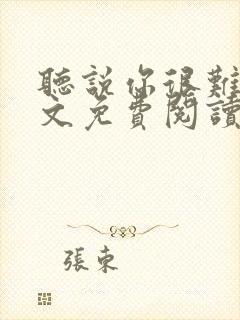 聽說你很難
文免費閱讀
張東